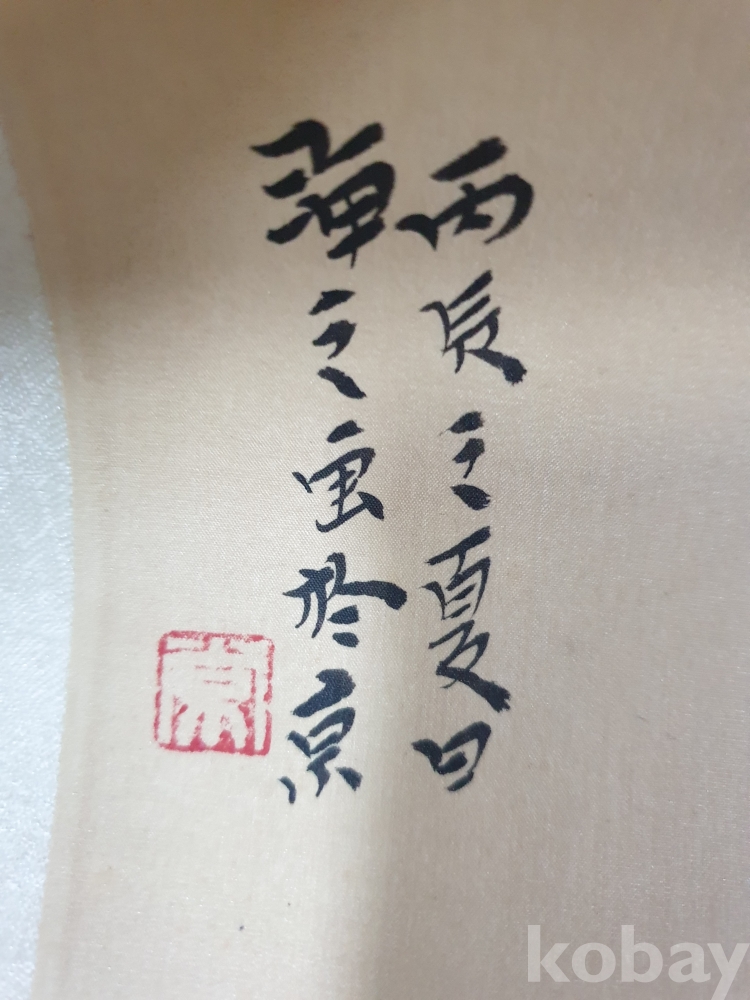 丙辰之夏日
弹之画於京
kobay